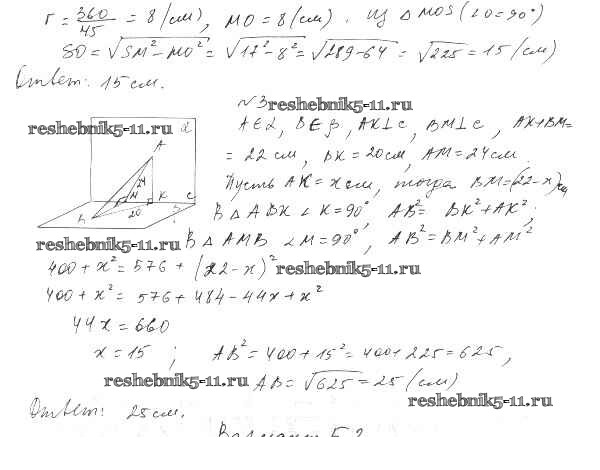 r = 360/45 = 8 (см), MO = 8 (см). Из △MOS (∠O = 90°)
SO = √SM² - MO² = √17² - 8² = √289 - 64 = √225 = 15 (см)
Ответ: 15 см.
№3 reshebnik5-11.ru
reshebnik5-11.ru
A∈α, B∈β, AK⊥c, BM⊥c, AK+BM=
= 22 см, BK = 20 см, AM = 24 см.
Пусть AK = x см, тогда BM = (22 - x) см
В △ABK ∠K = 90°, AB² = BK² + AK²;
reshebnik5-11.ru
В △AMB ∠M = 90°, AB² = BM² + AM²
α
A
24
K
c
20
400 + x² = 576 + (22 - x)²
reshebnik5-11.ru
400 + x² = 576 + 484 - 44x + x²
44x = 660
x = 15; AB² = 400 + 15² = 400 + 225 = 625,
reshebnik5-11.ru
AB = √625 = 25 (см)
reshebnik5-11.ru
Ответ: 25 см.